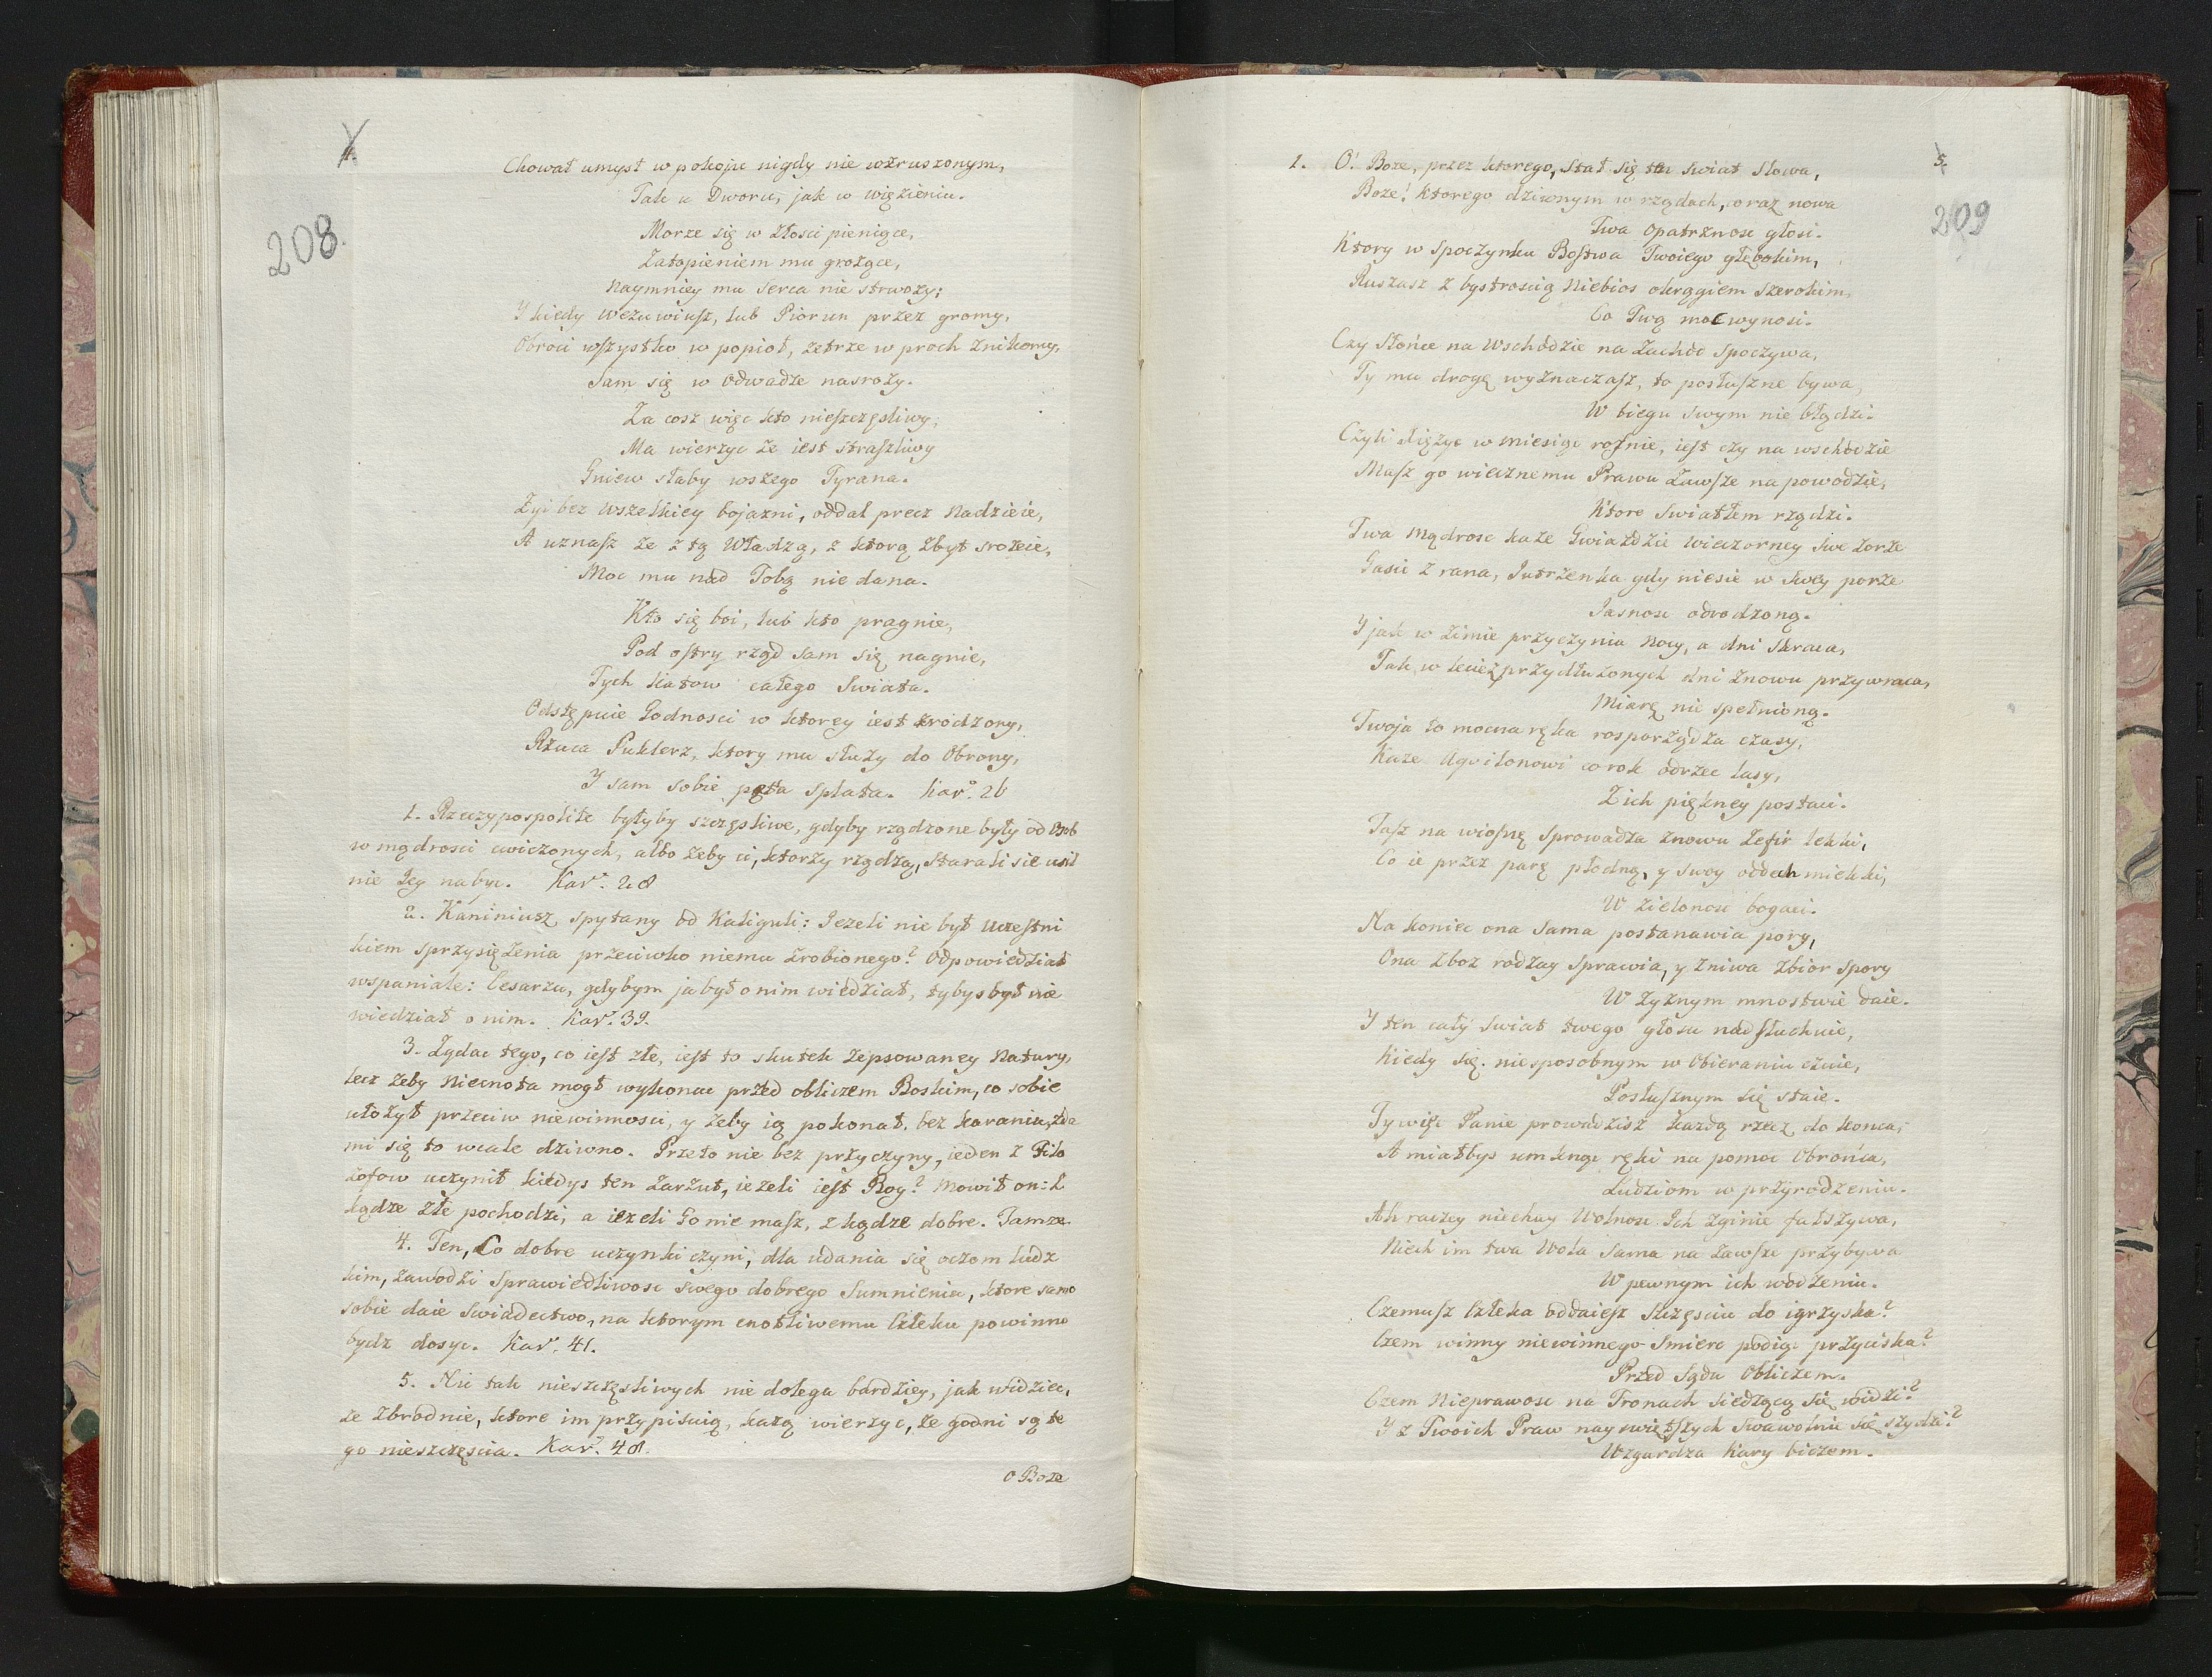 4.
208.
Chował umysł w pokoju nigdy nie wzruszonym,
Tak u Dworu, jak w więzieniu.
Morze się w złości pieniące,
Zatopieniem mu grożące,
Naymniey mu serca nie strwoży;
Y kiedy Wezuwiusz, lub Piorun przez gromy,
Obroci wszystko w popioł, zetrze w proch znikomy,
Sam się w Odwadze nasroży.
Za cosz więc kto nieszczęsliwy,
Ma wierzyc że iest straszliwy
Gniew słaby wszego Tyrana.
Żyi bez wszelkiey bojazni, oddal precz nadzieie,
A uznasz że z tą Władzą, z ktorą zbyt srożeie,
Moc mu nad Tobą nie dana.
Kto się boi, lub kto pragnie,
Pod ostry rząd sam się nagnie,
Tych katow całego Swiata.
Odstępuie Godnosci w ktorey iest zrodzony,
Rzuca Puklerz, ktory mu służy do Obrony,
Y sam sobie pęta splata. Kar. 26
1. Rzeczypospolite byłyby szczęsliwe, gdyby rządzone były od Osob
w mądrosci cwiczonych, albo żeby ci, ktorzy rządzą, starali sie usil
nie Jey nabyc. Kar. 28
2. Kaniniusz spytany od Kaliguli: Jeżeli nie był uczestni
kiem sprzysiężenia przeciwko niemu zrobionego? Odpowiedział
wspaniale: Cesarzu, gdybym ja był o nim wiedział, tybys był nie
wiedział o nim. Kar. 39.
3. Żądac tego, co iest złe, iest to skutek zepsowaney natury,
lecz żeby Niecnota mogł wykonac przed obliczem Boskim, co sobie
ułożył przeciw niewinnosci, y żeby ią pokonał, bez karania, zda
mi się to wcale dziwno. Przeto nie bez przyczyny, ieden z Filo
zofow uczynił kiedys ten Zarzut, ieżeli iest Bog? mowił on: z
kądże złe pochodzi, a ieżeli Go nie masz, z kądże dobre. Tamże
4. Ten, Co dobre uczynki czyni, dla udania się oczom ludz
kim, zawodzi sprawiedliwosc swego dobrego Sumnienia, ktore samo
sobie daie Swiadectwo, na ktorym cnotliwemu Człeku powinno
bydz dosyc. Kar. 41.
5. Nic tak nieszczęsliwych nie dolega bardziey, jak widziec,
że zbrodnie, ktore im przypisuią, każą wierzyc, że godni są te
go nieszczęscia. Kar. 48.
O Boże
5.
209
1. O! Boże, przez ktorego, stał się ten swiat słowa,
Boże! ktorego dziwnym w rządach, coraz nowa
Twa Opatrznosc głosi.
Ktory w spoczynku Bostwa Twoiego głębokim,
Ruszasz z bystroscią Niebios okrągiem szerokim,
Co Twą moc wynosi.
Czy Słońce na Wschodzie na Zachod spoczywa,
Ty mu drogę wyznaczasz, to posłuszne bywa,
W biegu swym nie błądzi.
Czyli xiężyc w miesiąc rosnie, iest czy na wschodzie
Masz go wiecznemu Prawu zawsze na powodzie,
Ktore swiatłem rządzi.
Twa mądrosc każe Gwiazdzie wieczorney swe zorze
Gasic z rana, Jutrzenka gdy niesie w swey porze
Jasnosc odrodzoną.
Y jak w zimie przyczynia nocy, a dni skraca,
Tak w lecie z przydłużonych dni znowu przywraca,
Miarę nie spełnioną.
Twoja to mocna ręka rosporządza czasy,
Każe Aqvilonowi co rok odrzec lasy,
Z ich piękney postaci.
Tasz na wiosnę sprowadza znowu Zefir lekki,
Co ie przez parę płodną, y swoy oddech miekki,
W zielonosc bogaci.
Na koniec ona sama postanawia pory,
Ona zboz rodzay sprawia, y żniwa zbior spory
W żyznym mnostwie daie.
Y ten cały swiat twego głosu nadsłuchuie,
Kiedy się niesposobnym w Obieraniu czuie,
Posłusznym się staie.
Ty więc Panie prowadzisz każdą rzecz do konca,
A miałbys umknąc ręki na pomoc Obrońca,
Ludziom w przyrodzeniu.
Ah raczey niechay Wolnosc Ich zginie fałszywa,
Niech im twa Wola sama na zawsze przybywa
W pewnym ich wodzeniu.
Czemusz Człeka oddaiesz szczęsciu do igrzyska?
Czem winny niewinnego Smierc podiąc przyciska?
Przed Sądu Obliczem.
Czem Nieprawosc na Tronach siedzącą się widzi?
Y z Twoich Praw nayswiętszych swawolnie się szydzi?
Wzgardza Kary biczem.